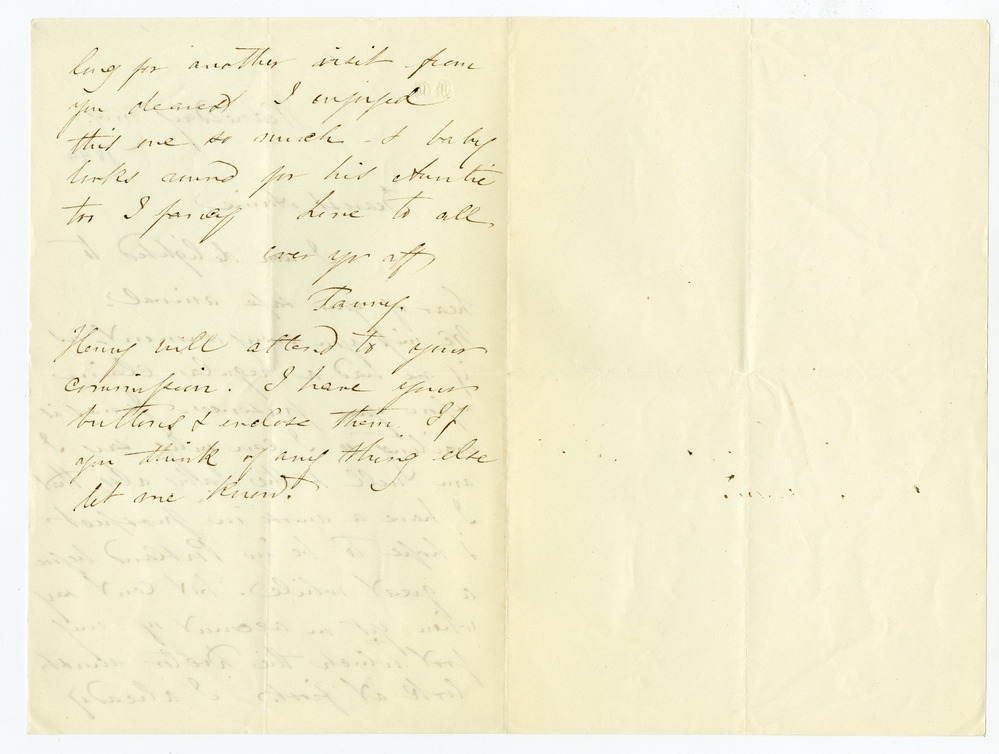 long for another visit from
you dearest I enjoyed
this one so much - & baby
looks around for his Auntie
too I fancy Love to all
ever yr aff
Fanny.
Henry will attend to your
commission. I have your
buttons & enclose them. If
you think of any thing else
let me know.